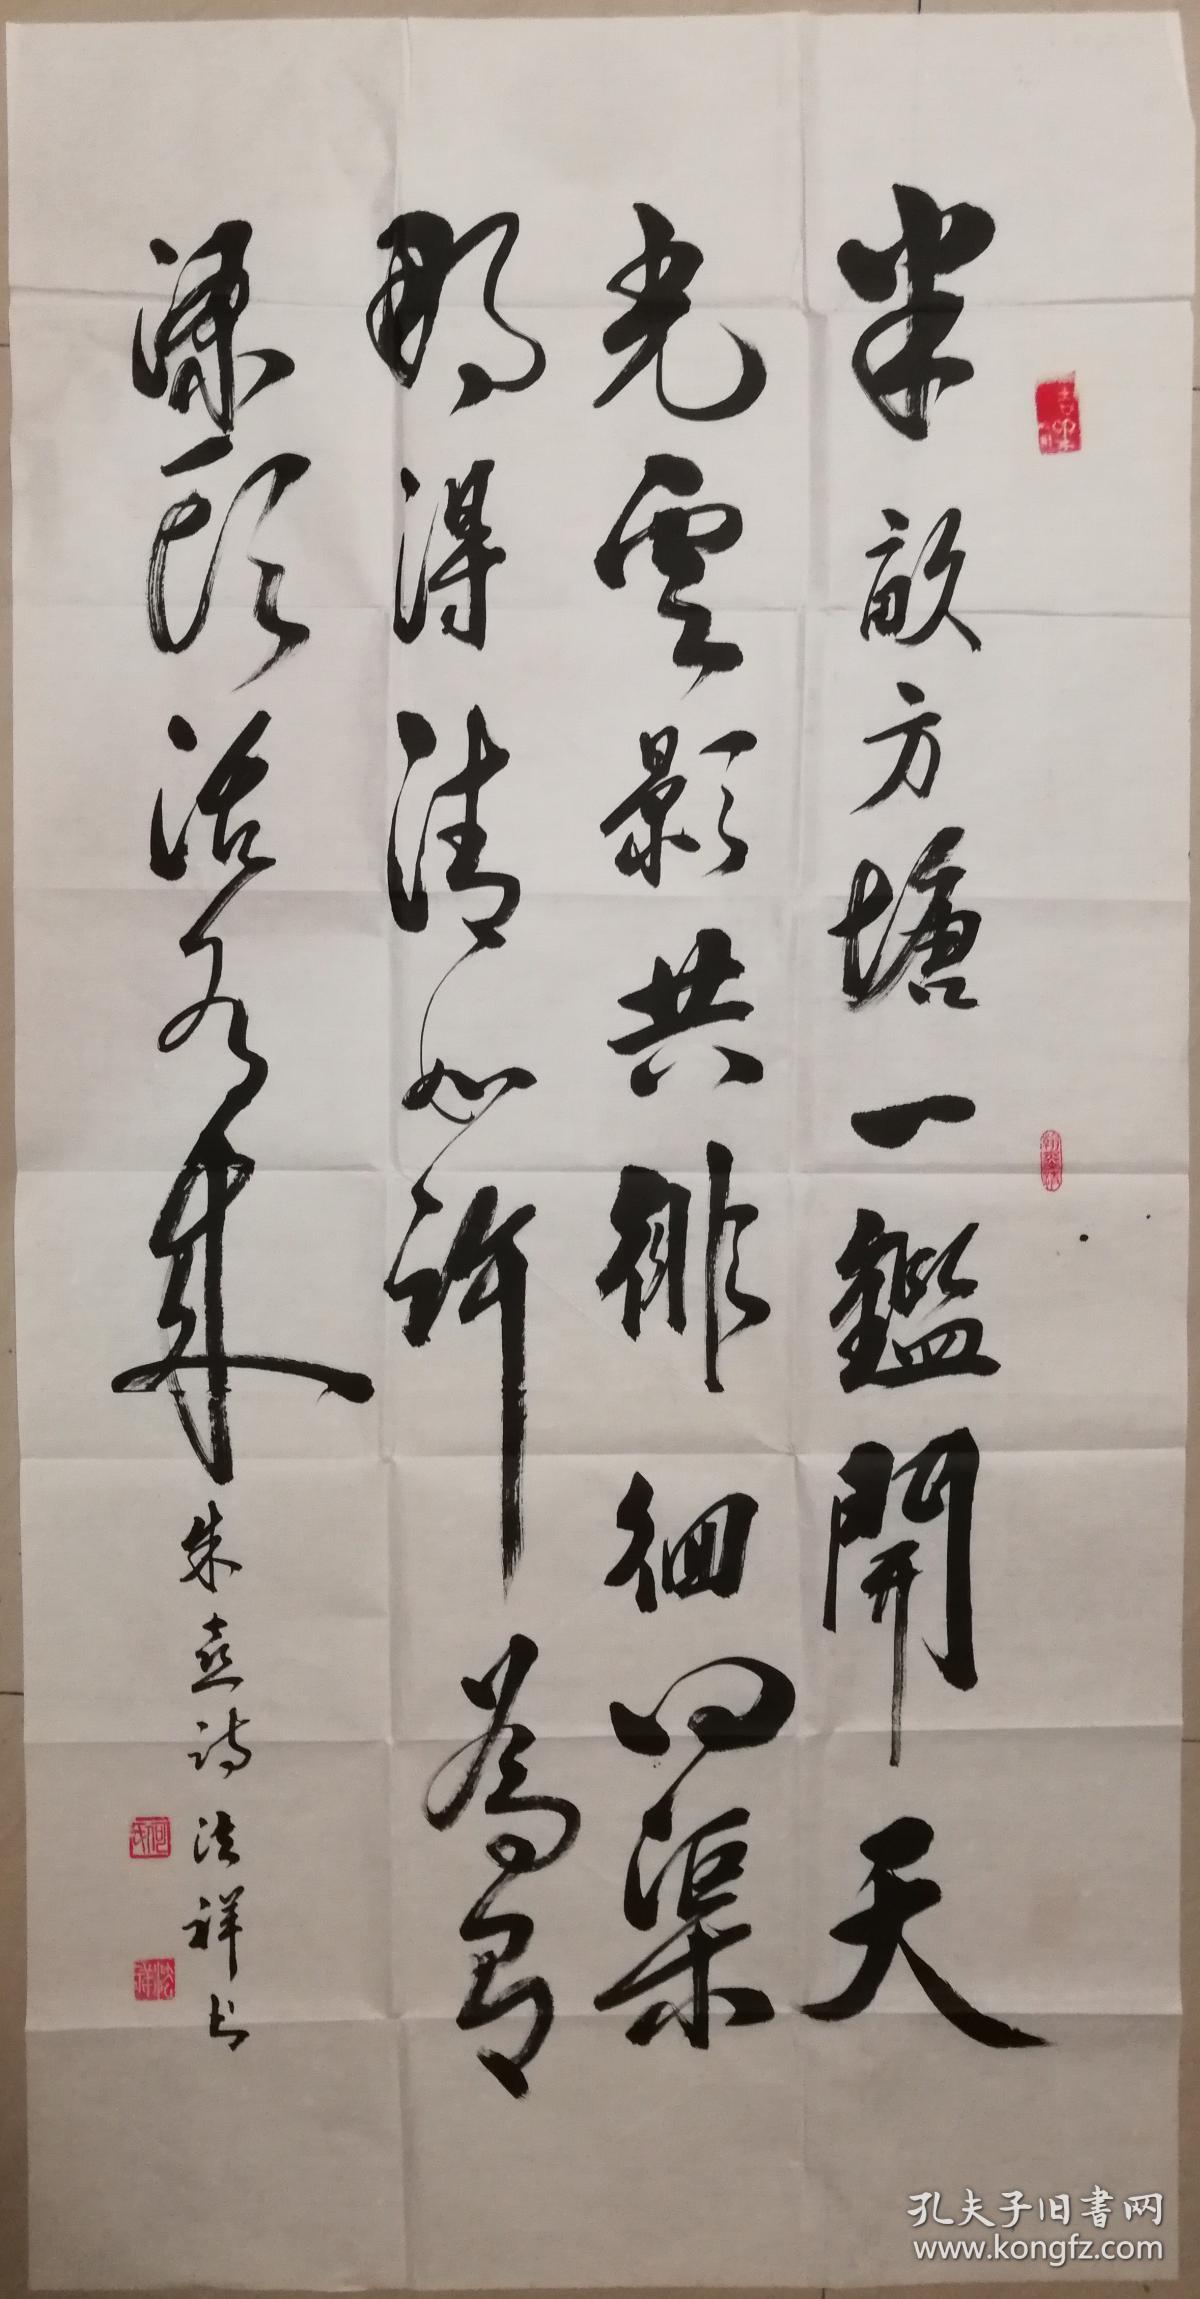 半畝方塘一鑑開天
光雲影共徘徊问渠
那得清如许為有
源頭活水来
朱熹诗法祥书
孔夫子旧書网
www.kongfz.com